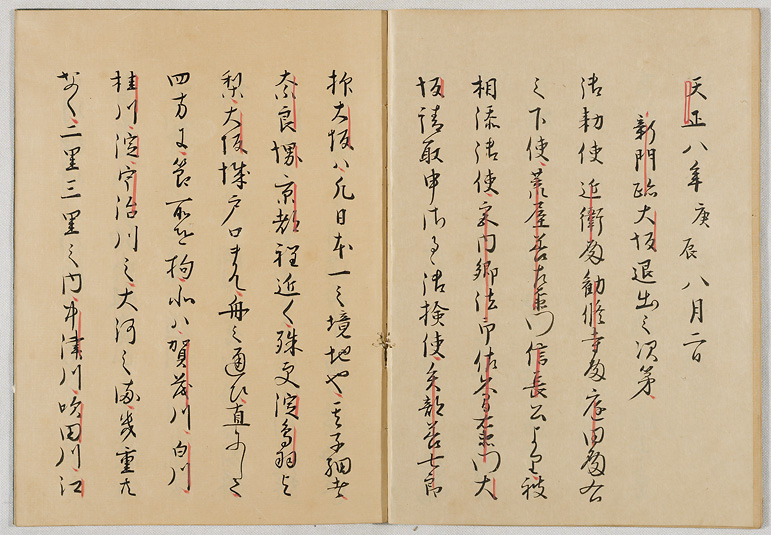 天正八年庚辰八月二日
新門跡大坂退出之次第
御勅使 近衛殿勧修寺殿庭田殿右
之下使荒屋善左衛門信長公より被
相添御使宮内卿法印佐久間右衛門大
坂請取申さるゝ御検使矢部善七郎
抑大坂ハ凡日本一之境地也其子細者
奈良堺京都程近く殊更淀鳥羽より
大坂城戸口まて舟之通ひ直にして
四方に節所を拘北ハ賀茂川白川
桂川淀宇治川之大河之流幾重共
なく二里三里之内中津川吹田川江